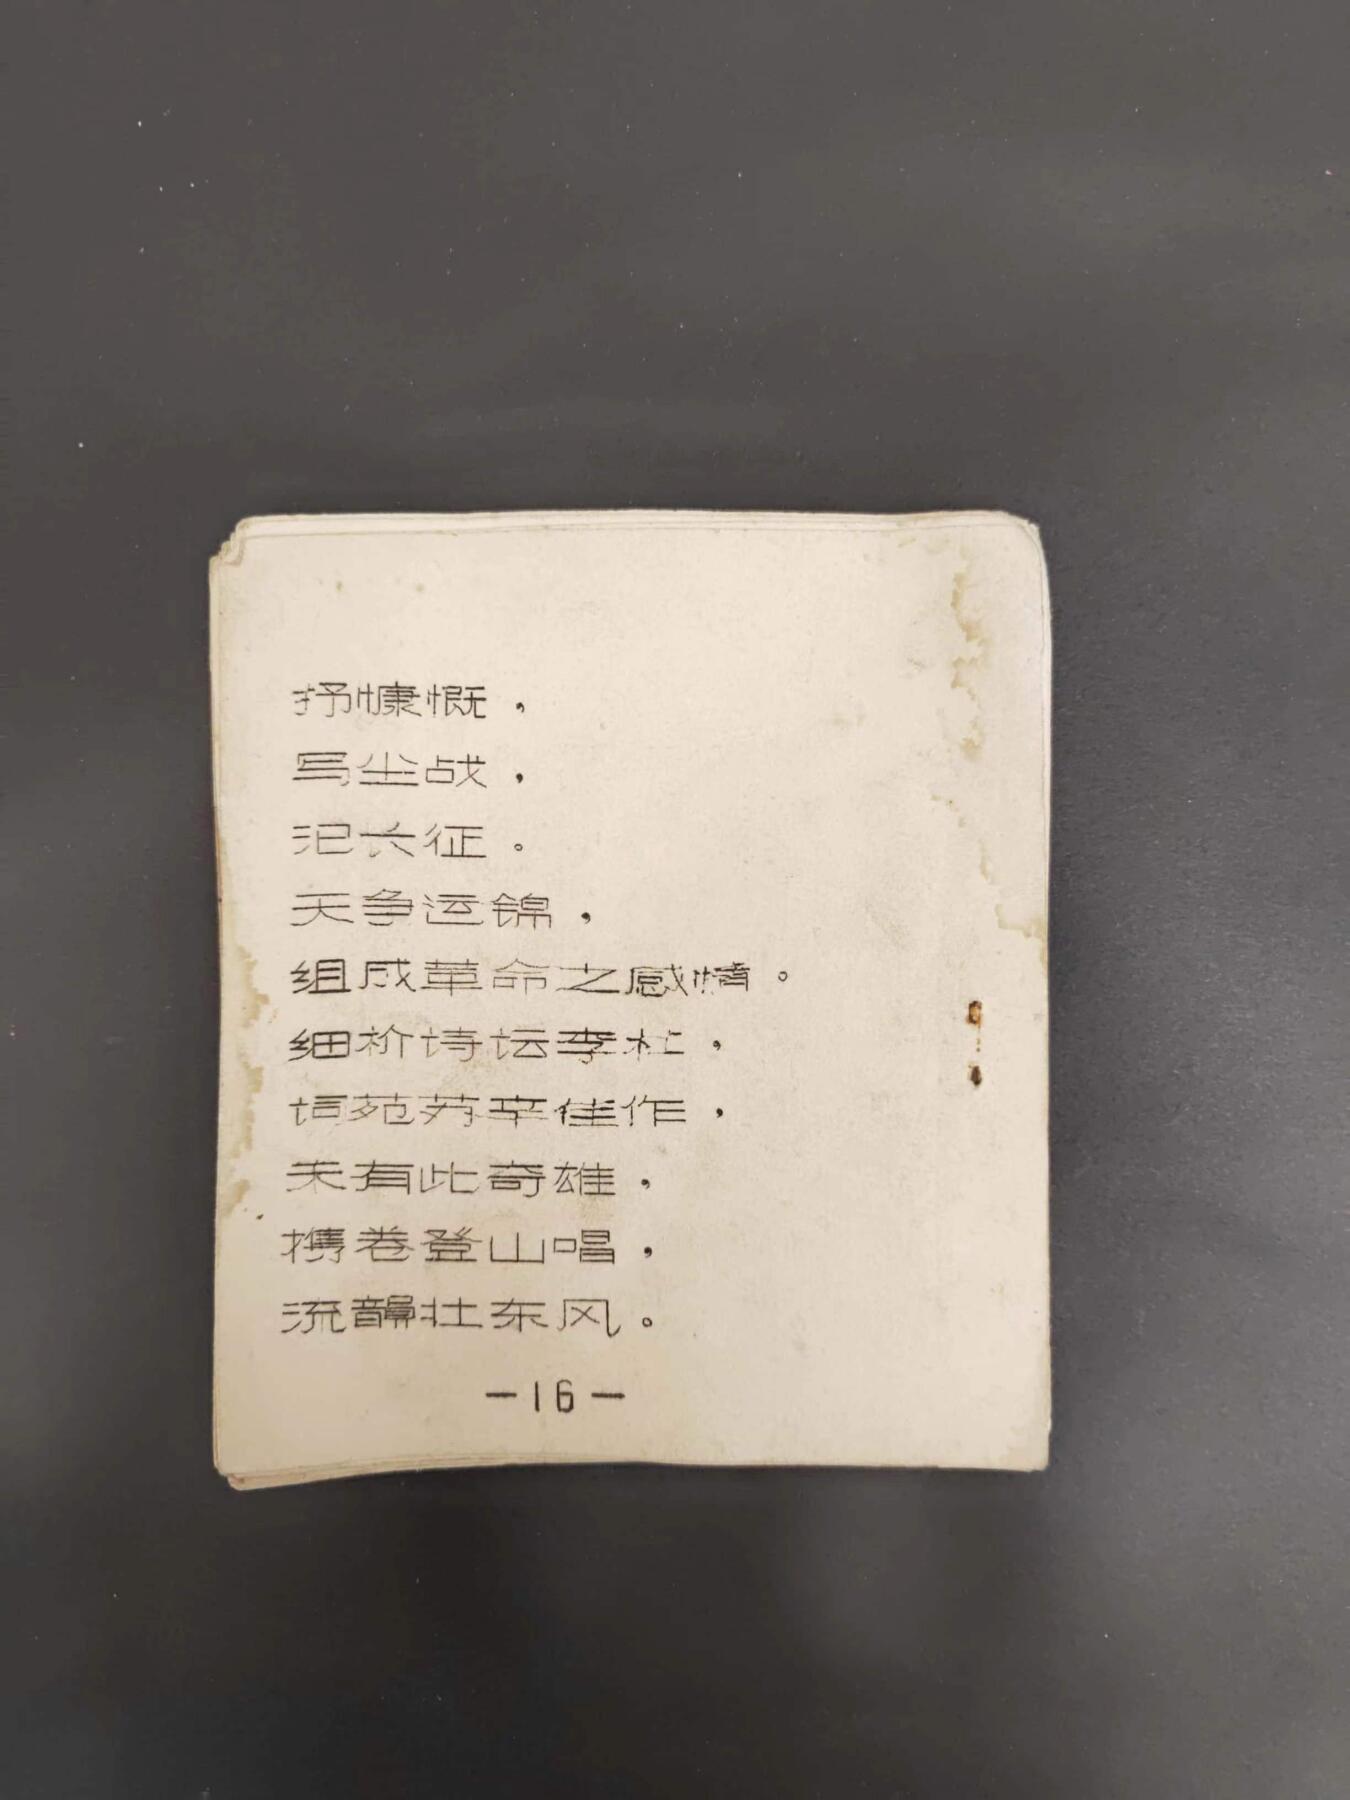 抒慷慨，
写尘战，
记长征。
天争运锦，
组成革命之感情。
细阶诗坛李杜，
词苑苏辛佳作，
未有此奇雄，
携卷登山唱，
流韻壮东风。
—16—